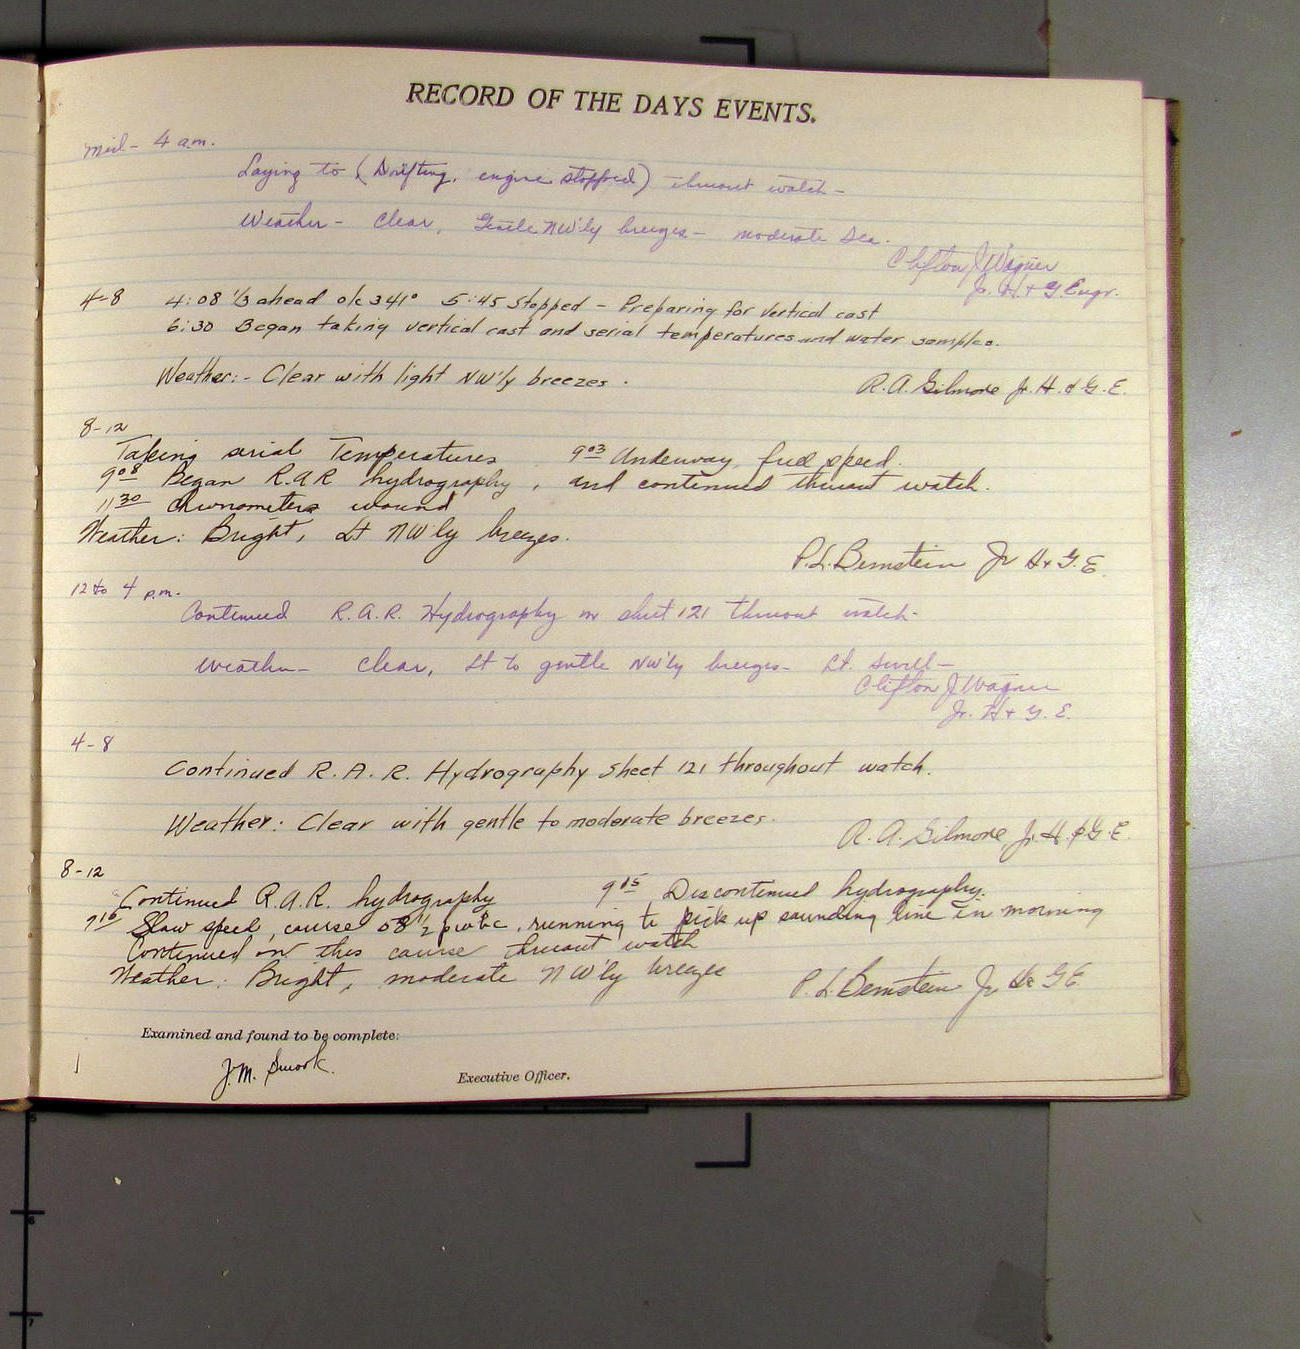 RECORD OF THE DAYS EVENTS.
Mid- 4 a.m.
Laying to (Drifting, engine stopped) thruout watch -
Weather - Clear, Gentle NW'ly breezes - moderate Sea.
Clifton J. Wagner
Jr. H + G. Engr.
4-8 4:08 1/3 ahead o/c 341° 5:45 Stopped - Preparing for vertical cast
6:30 Began taking vertical cast and serial temperatures and water samples.
Weather:- Clear with light NW'ly breezes.
R.A. Gilmore Jr. H. & G. E.
8-12
Taking serial Temperatures 9 03 Underway, full speed.
9 08 Began R.A.R hydrography, and continued thruout watch.
11 30 Chronometers wound
Weather: Bright, Lt NW'ly breezes.
P.L. Bernstein Jr H + G. E.
12 to 4 p.m.
Continued R.A.R. Hydrography on sheet 121 thruout watch-
Weather- Clear, Lt to gentle NW'ly breezes- Lt. Swell-
Clifton J. Wagner
Jr. H + G. E.
4-8
Continued R.A.R. Hydrography Sheet 121 throughout watch.
Weather: Clear with gentle to moderate breezes.
R.A. Gilmore, Jr. H. & G. E.
8-12
Continued R.A.R. hydrography 9 15 Discontinued hydrography.
Slow speed, course 58 1/2 running to pick up sounding line in morning
Continued on this course thruout watch
Weather: Bright, moderate NW'ly breeze
P.L. Bernstein Jr H & G E.
Examined and found to be complete:
J.M. Smook.
Executive Officer.
6
7